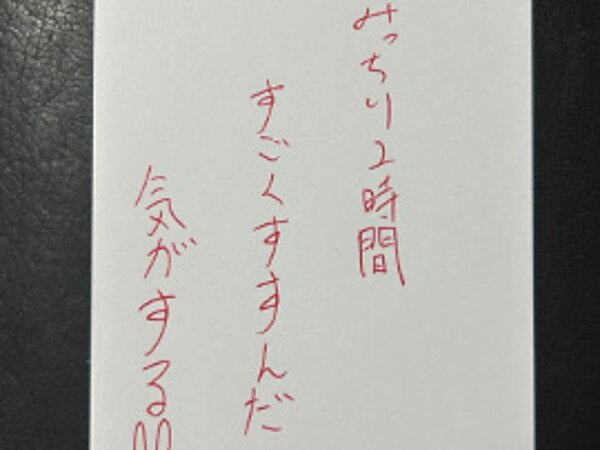 みっちり2時間
すごくすすんだ
気がする!!